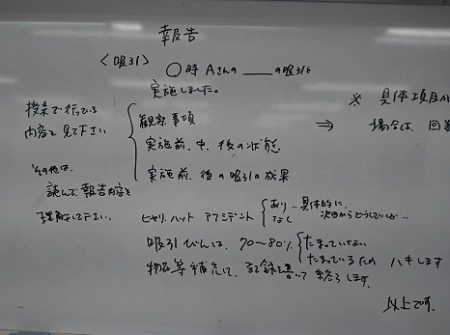 報告
〈吸引〉
○時 Aさんの ＿＿の吸引を
実施しました。
授業で行っている
内容を見て下さい
観察事項
実施前、中、後の状態
実施前、後の吸引の成果
⇒
※ 具体項目が
場合は、回
その他は、
読んで、報告内容を
理解して下さい。
ヒヤリ、ハット アクシデント
あり - 具体的に、
次回からどうしていくか..
なし
吸引びんは、70〜80%
たまっていない
たまっているため ハキします
物品等補充して、記録を書いて終了します。
以上です。